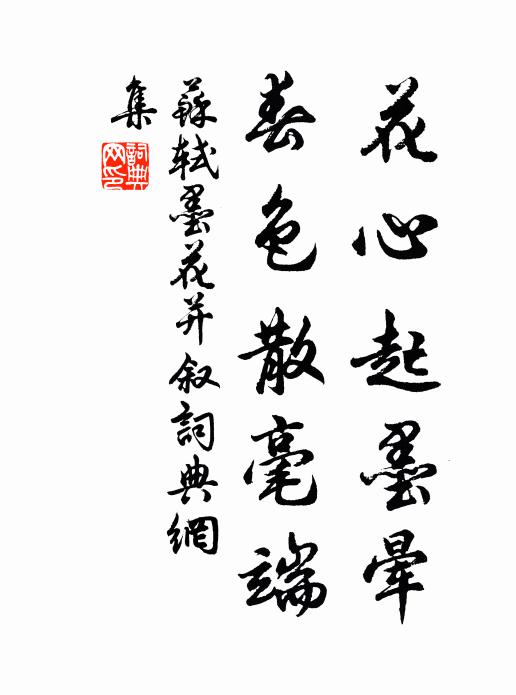 花心起墨暈
春色散毫端
蘇軾墨花并叙詞典網
集
詞典網印